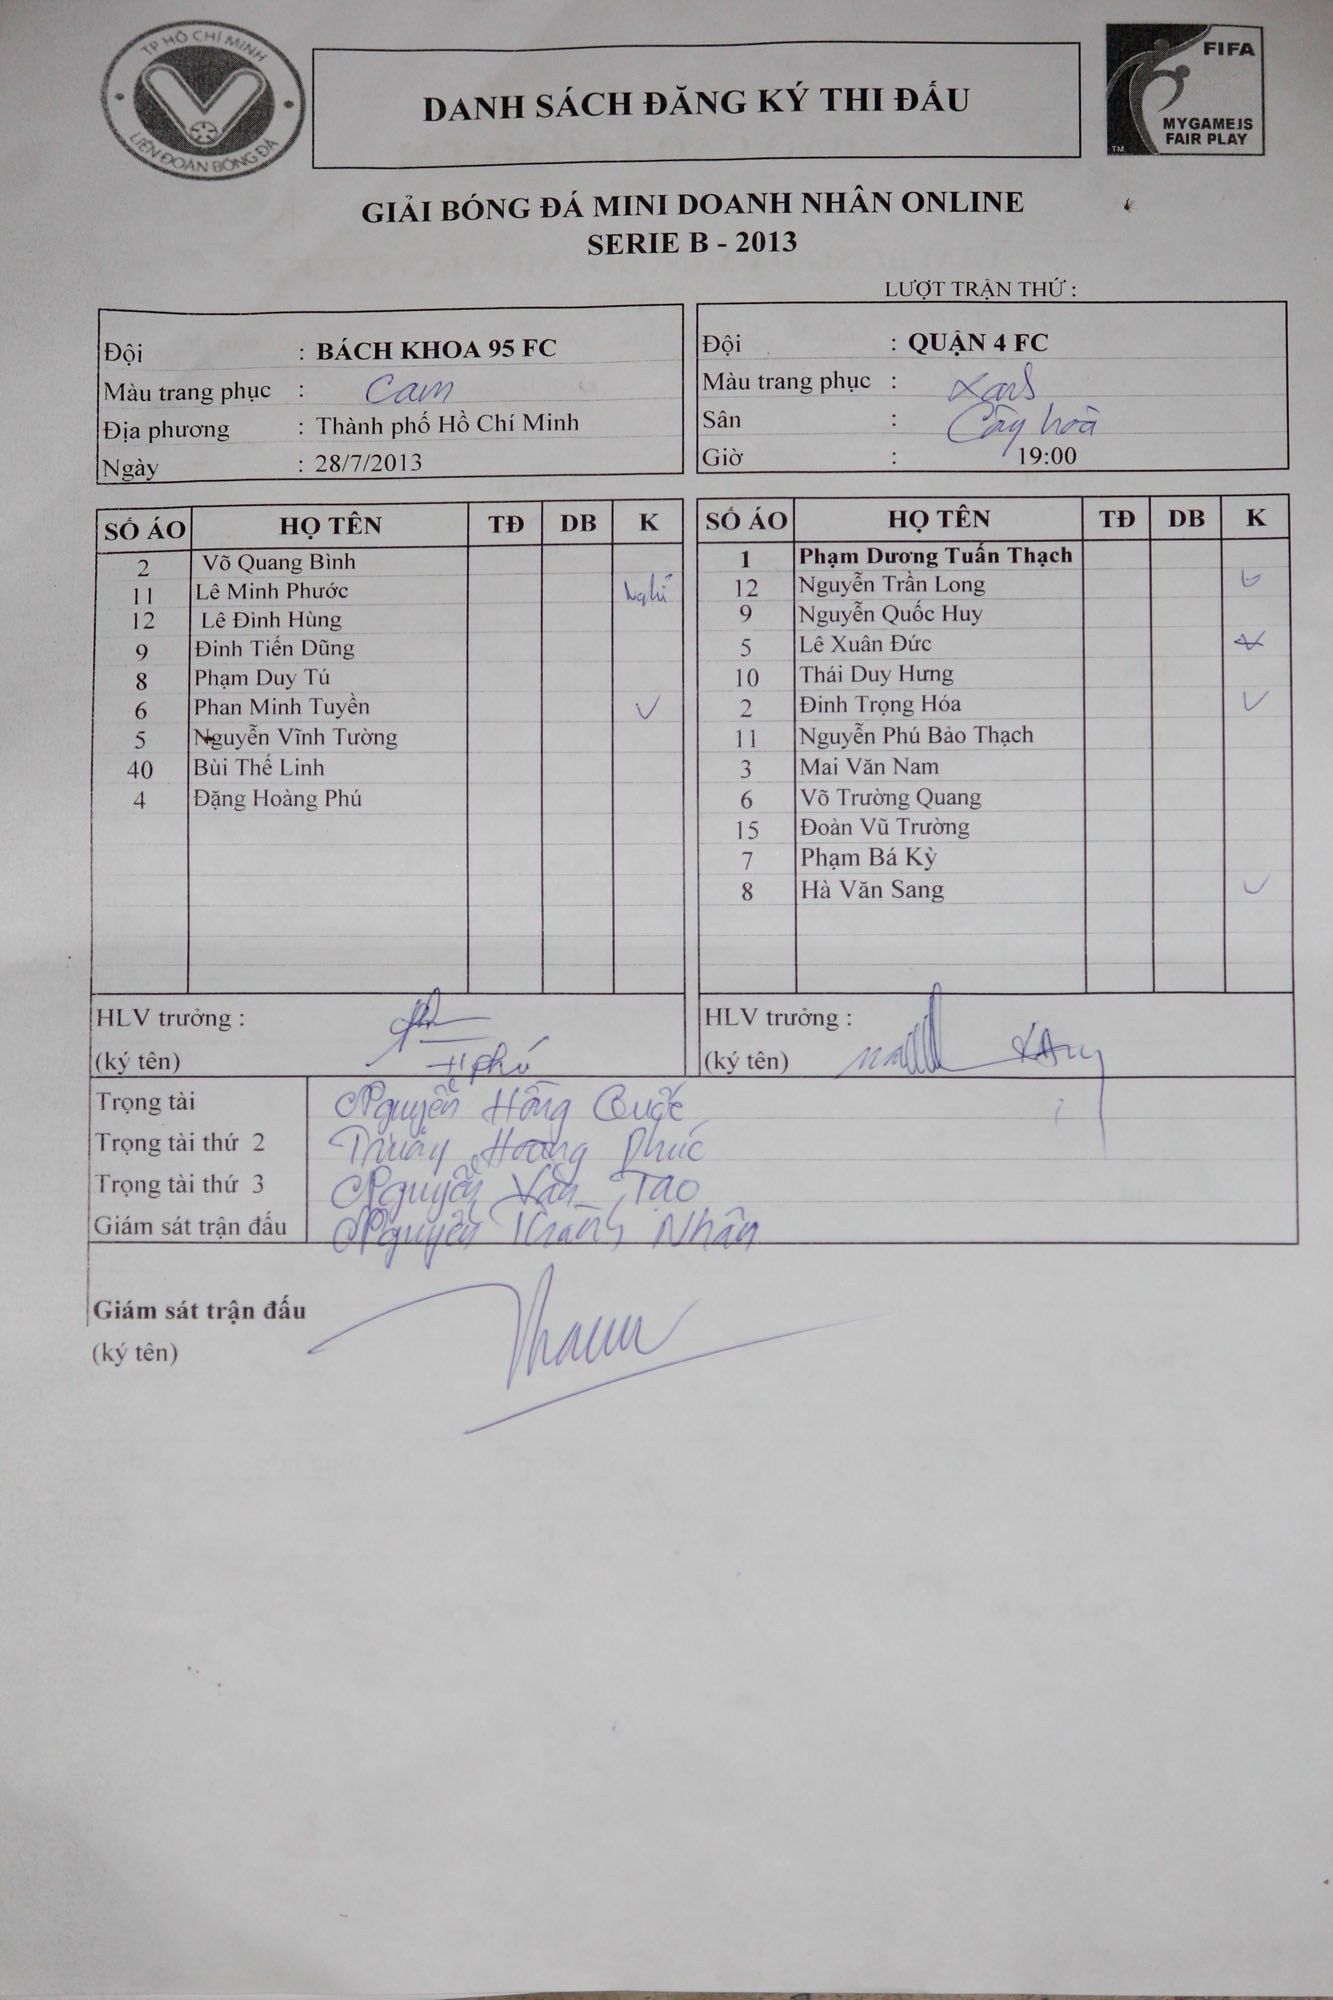 TP HỒ CHÍ MINH
LIÊN ĐOÀN BÓNG ĐÁ
DANH SÁCH ĐĂNG KÝ THI ĐẤU
FIFA
MY GAME IS
FAIR PLAY
TM
GIẢI BÓNG ĐÁ MINI DOANH NHÂN ONLINE
SERIE B - 2013
LƯỢT TRẬN THỨ :
Đội : BÁCH KHOA 95 FC
Màu trang phục : Cam
Địa phương : Thành phố Hồ Chí Minh
Ngày : 28/7/2013
Đội : QUẬN 4 FC
Màu trang phục : Xanh
Sân : Cây
Giờ : 19:00
SỐ ÁO HỌ TÊN TĐ DB K
2 Võ Quang Bình
11 Lê Minh Phước Nghỉ
12 Lê Đình Hùng
9 Đinh Tiến Dũng
8 Phạm Duy Tú
6 Phan Minh Tuyền
5 Nguyễn Vĩnh Tường
40 Bùi Thế Linh
4 Đặng Hoàng Phú
SỐ ÁO HỌ TÊN TĐ DB K
1 Phạm Dương Tuấn Thạch
12 Nguyễn Trần Long
9 Nguyễn Quốc Huy
5 Lê Xuân Đức
10 Thái Duy Hưng
2 Đinh Trọng Hóa
11 Nguyễn Phú Bảo Thạch
3 Mai Văn Nam
6 Võ Trường Quang
15 Đoàn Vũ Trường
7 Phạm Bá Kỳ
8 Hà Văn Sang
HLV trưởng :
(ký tên) H Phú
HLV trưởng :
(ký tên)
Trọng tài Nguyễn Hồng Quốc
Trọng tài thứ 2 Hoàng Phúc
Trọng tài thứ 3 Nguyễn Văn Tạo
Giám sát trận đấu Nguyễn Thành Nhân
Giám sát trận đấu
(ký tên)